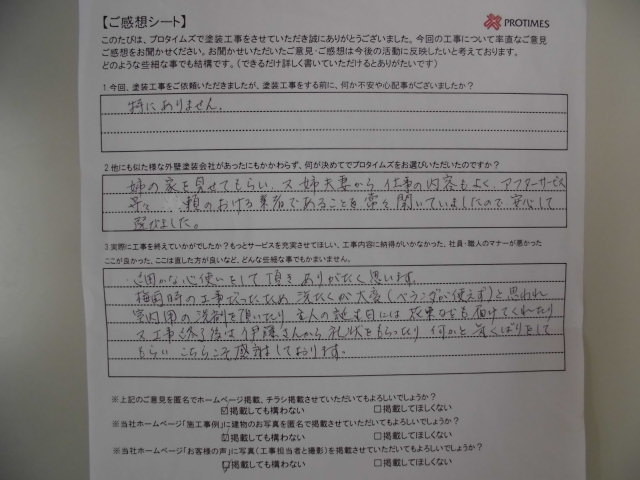 【ご感想シート】
PROTIMES
このたびは、プロタイムズで塗装工事をさせていただき誠にありがとうございました。今回の工事について率直なご意見
ご感想をお聞かせください。お聞かせいただいたご意見・ご感想は今後の活動に反映したいと考えております。
どのような些細な事でも結構です。（できるだけ詳しく書いていただけるとありがたいです）
1.今回、塗装工事をご依頼いただきましたが、塗装工事をする前に、何か不安や心配事がございましたか？
特にありません。
2.他にも似た様な外壁塗装会社があったにもかかわらず、何が決めてでプロタイムズをお選びいただいたのですか？
姉の家を見せてもらい、又姉夫妻から仕事の内容もよく、アフターサービス
等々 頼のおける業者であることを常々聞いていましたので、安心して
選びました。
3.実際に工事を終えていかがでしたか？もっとサービスを充実させてほしい、工事内容に納得がいかなかった、社員・職人のマナーが悪かった
ここが良かった、ここは直した方が良いなど、どんな些細な事でもかまいません。
心使いをして頂きありがたく思います。
梅雨時の工事だったため、洗たくが大変（ベランダが使えず）と思われ
室内用の洗剤を頂いたり、主人の誕生日には お届けてくれたり
又工事終了後は伊藤さんから礼状をもらったり何かと気くばりをして
もらい こちらこそ感謝しております。
※上記のご意見を匿名でホームページ掲載、チラシ掲載させていただいてもよろしいでしょうか？
☑掲載しても構わない □掲載してほしくない
※当社ホームページ「施工事例」に建物のお写真を匿名で掲載させていただいてもよろしいでしょうか？
☑掲載しても構わない □掲載してほしくない
※当社ホームページ「お客様の声」に写真（工事担当者と撮影）を掲載させていただいてもよろしいでしょうか？
☑掲載しても構わない □掲載してほしくない